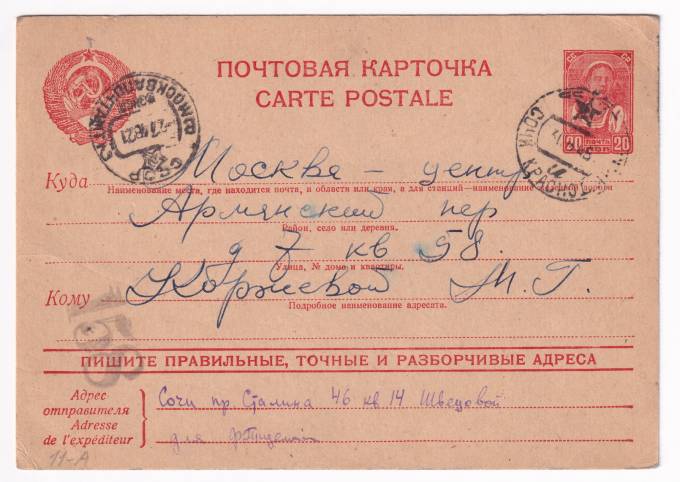 ПОЧТОВАЯ КАРТОЧКА
CARTE POSTALE
СССР
20 ПОЧТА 20
КОП.
Куда Москва – центр
Наименование места, где находится почта, и области или края, а для станций—наименование железной дороги
Армянский пер
Район, село или деревня.
д 7 кв 58.
Улица, № дома и квартиры.
Кому Коржевской М. Г.
Подробное наименование адресата.
158
ПИШИТЕ ПРАВИЛЬНЫЕ, ТОЧНЫЕ И РАЗБОРЧИВЫЕ АДРЕСА
Адрес отправителя
Adresse de l'expéditeur
Сочи пр. Сталина 46 кв 14 Швецовой
для
11-А